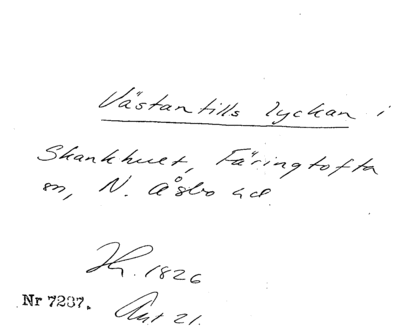 Västantills lyckan i
Skankhult, Färingtofta
sn, N. Åsbo hd.
Hr. 1826
Nr 7207. Akt 21.